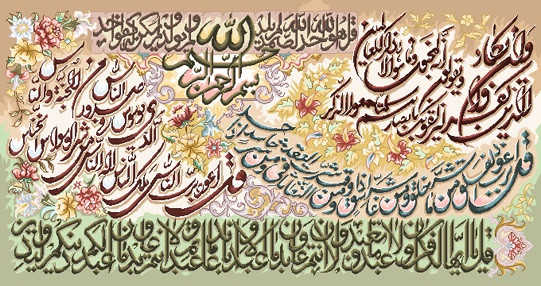 قل هو الله احد الله الصمد لم یلد ولم یولد ولم یکن له کفوا احد
بسم الله الرحمن الرحیم
وان یکاد الذین کفروا لیزلقونک بابصارهم لما سمعوا الذکر ویقولون انه لمجنون وما هو الا ذکر للعالمین
قل اعوذ برب الفلق من شر ما خلق ومن شر غاسق اذا وقب ومن شر النفاثات فی العقد ومن شر حاسد اذا حسد
قل اعوذ برب الناس ملک الناس اله الناس من شر الوسواس الخناس الذی یوسوس فی صدور الناس من الجنة والناس
قل یا ایها الکافرون لا اعبد ما تعبدون ولا انتم عابدون ما اعبد ولا انا عابد ما عبدتم ولا انتم عابدون ما اعبد لکم دینکم ولی دین